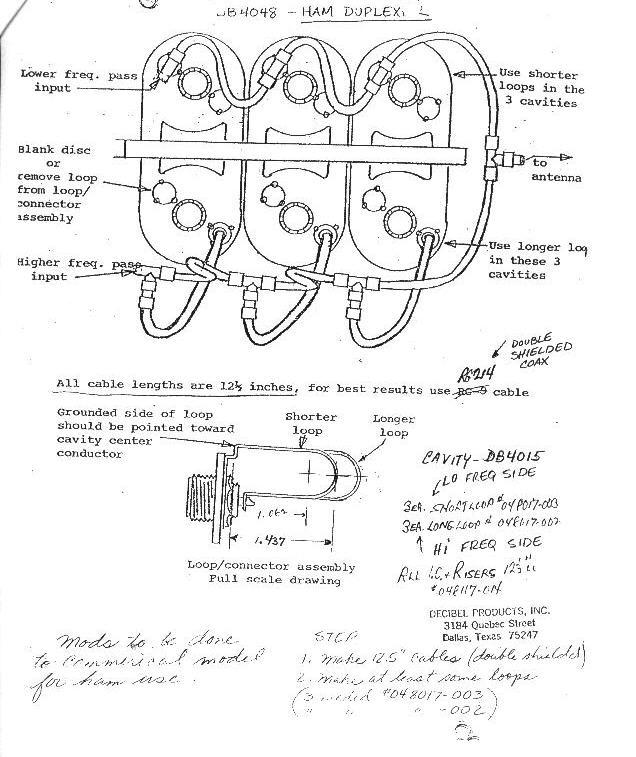 DB4048 - HAM DUPLEX
Lower freq. pass
input
Use shorter
loops in the
3 cavities
Blank disc
or
remove loop
from loop/
connector
assembly
to
antenna
Higher freq. pass
input
Use longer loo
in these 3
cavities
DOUBLE
SHIELDED
COAX
RG214
All cable lengths are 12½ inches, for best results use RG-9 cable
Grounded side of loop
should be pointed toward
cavity center
conductor
Shorter
loop
Longer
loop
1.062
1.437
Loop/connector assembly
Full scale drawing
CAVITY - DB4015
LO FREQ SIDE
3EA. SHORT LOOP # 048017-003
3EA. LONG LOOP # 048017-002
HI FREQ SIDE
ALL I.C. & RISERS 12½"
DECIBEL PRODUCTS, INC.
3184 Quebec Street
Dallas, Texas 75247
Mods to be done
to commerical model
for ham use.
STEP
1. make 12.5" cables (double shielded)
2. make at least some loops
(3 needed #048017-003)
" " " -002)